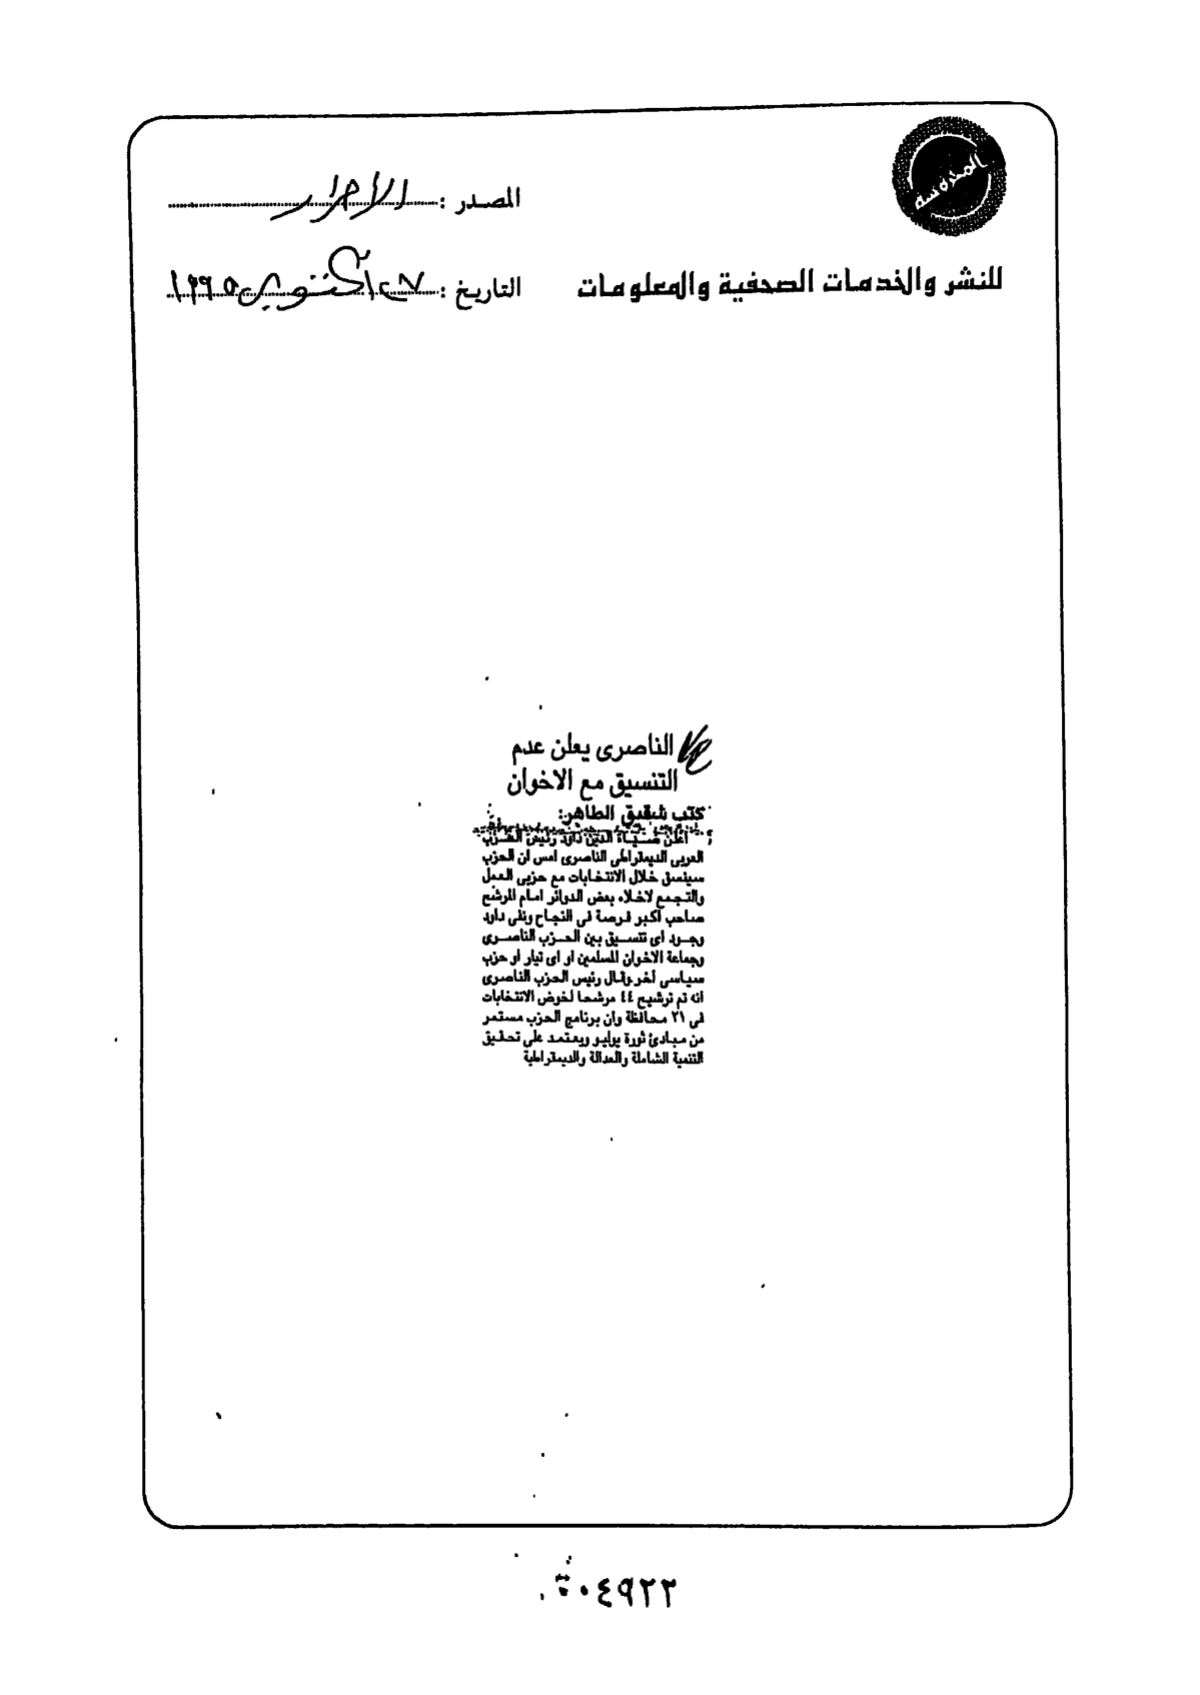 المحروسة
المصدر : الأحرار
للنشر والخدمات الصحفية والمعلومات
التاريخ : ٢٧ أكتوبر ١٩٩٥
الناصرى يعلن عدم
التنسيق مع الاخوان
كتب شفيق الطاهر:
اعلن ضياء الدين داود رئيس الحزب
العربى الديمقراطى الناصرى امس ان الحزب
سينسق خلال الانتخابات مع حزبى العمل
والتجمع لاخلاء بعض الدوائر امام المرشح
صاحب أكبر فرصة فى النجاح ونفى داود
وجود اى تنسيق بين الحزب الناصرى
وجماعة الاخوان المسلمين او اى تيار او حزب
سياسى آخر وقال رئيس الحزب الناصرى
انه تم ترشيح ٤٤ مرشحا لخوض الانتخابات
فى ٢١ محافظة وان برنامج الحزب مستمر
من مبادئ ثورة يوليو ويعتمد على تحقيق
التنمية الشاملة والعدالة والديمقراطية
٠٤٩٢٣